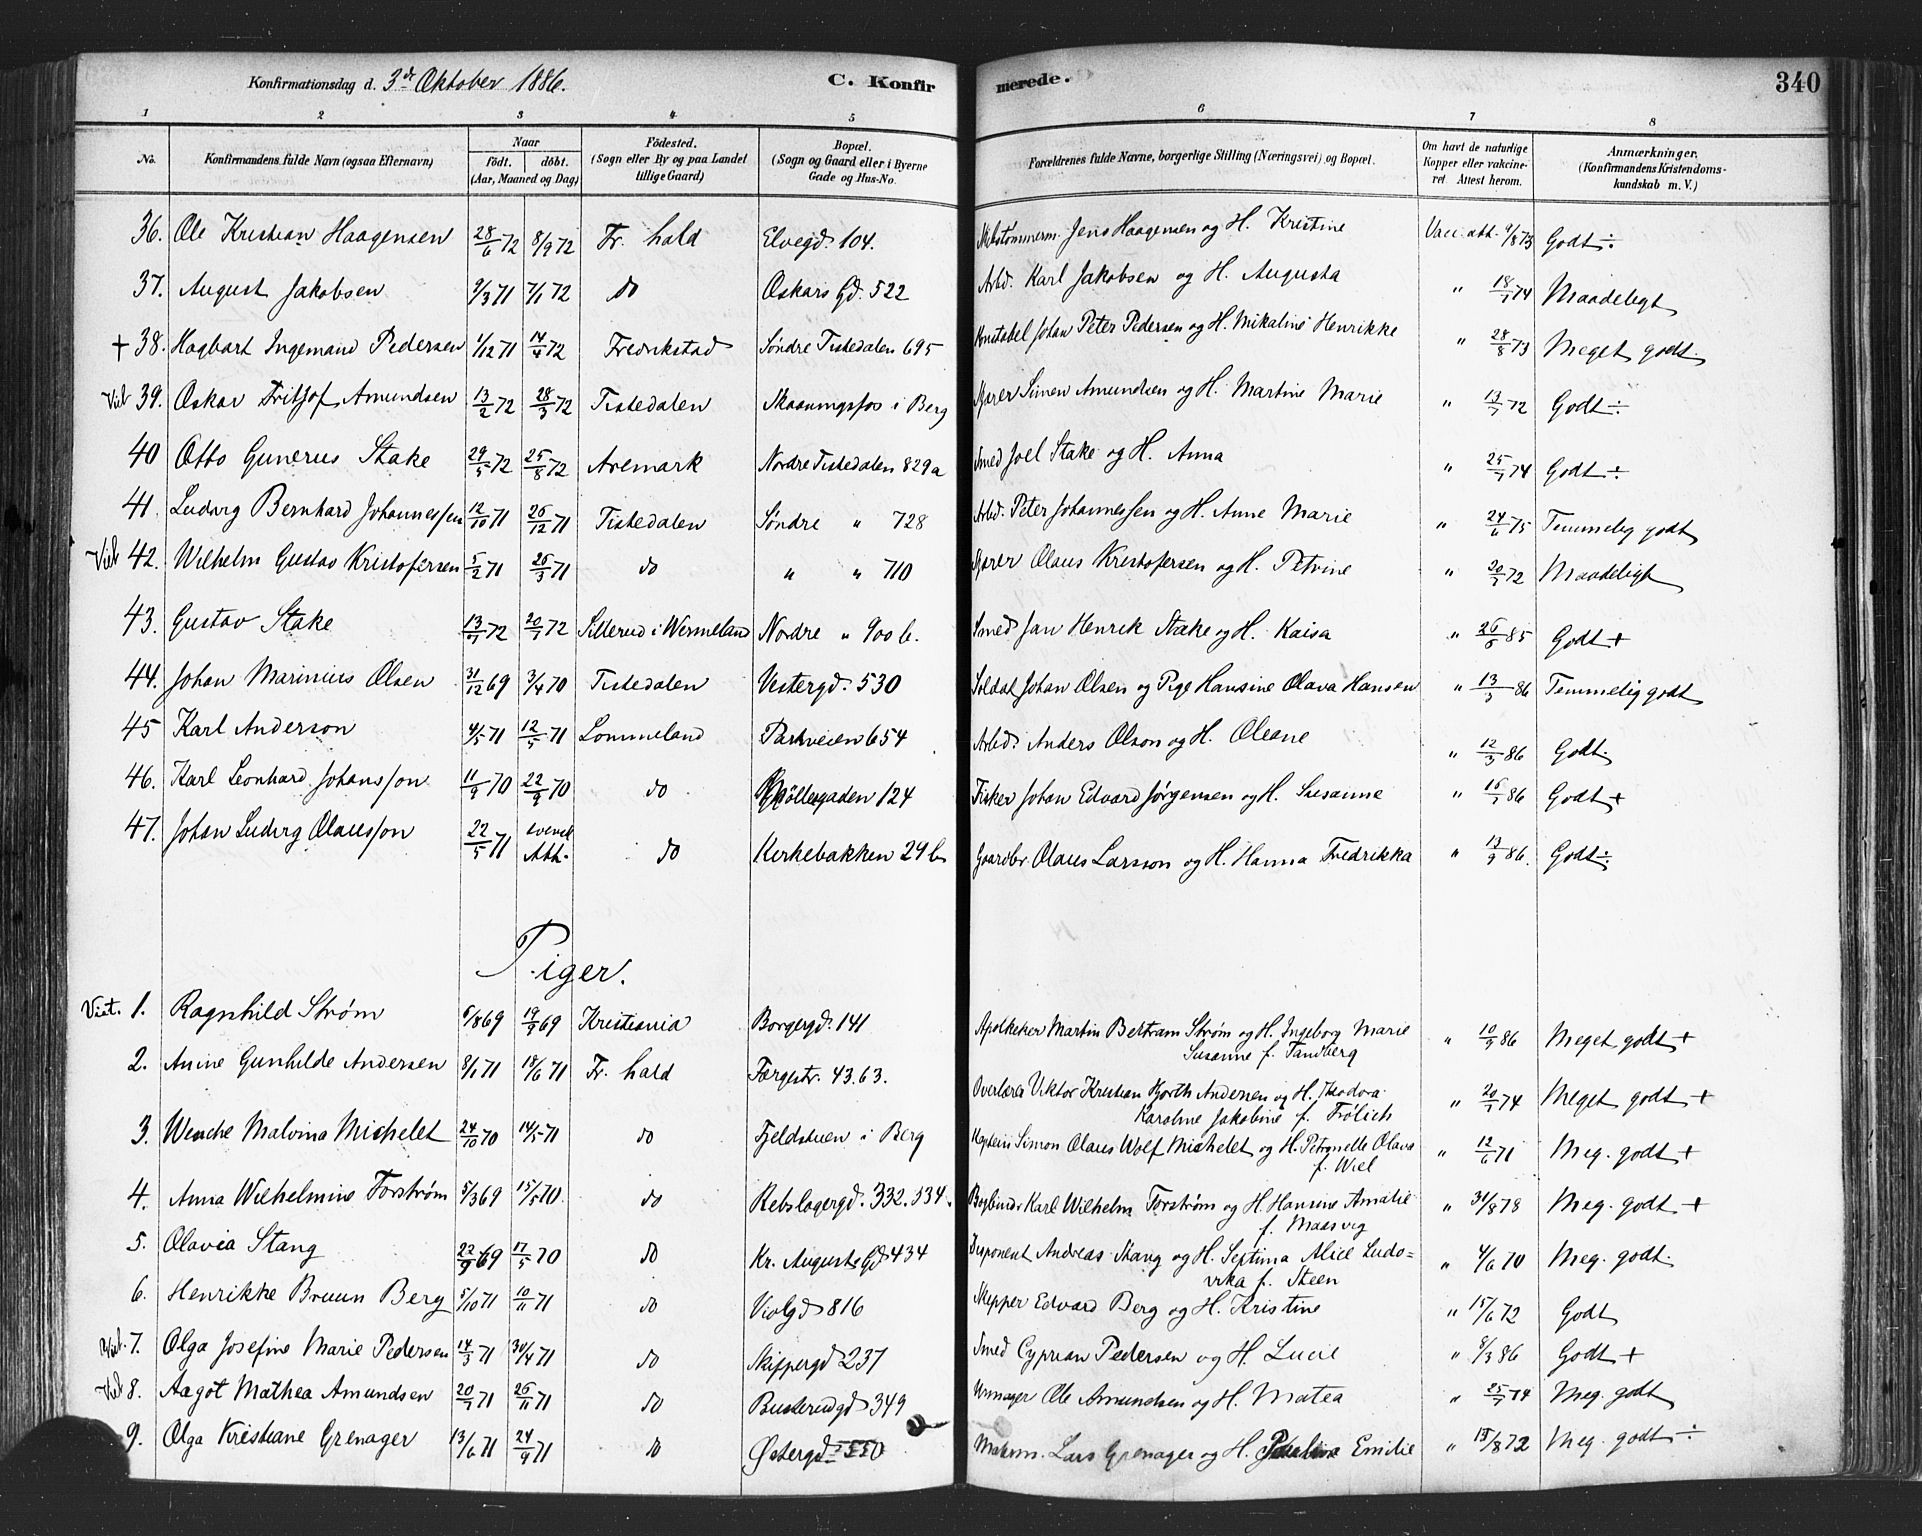 Konfirmationsdag d. 3de Oktober 1886. C. Konfirmerede. 340
1 2 3 4 5 6 7 8
No. Konfirmandens fulde Navn (ogsaa Efternavn) Naar födt. döbt. (Aar, Maaned og Dag) Födested. (Sogn eller By og paa Landet tillige Gaard) Bopæl. (Sogn og Gaard eller i Byerne Gade og Hus-No. Forældrenes fulde Navne, borgerlige Stilling (Næringsvei) og Bopæl. Om havt de naturlige Kopper eller vakcineret. Attest herom. Anmærkninger. (Konfirmandens Kristendomskundskab m. V.)
36. Ole Kristian Haagensen 28/6 72 8/9 72 Fr. hald Elvegd. 104. Jens Haagensen og H. Kristine Vacc. att. 9/8 73 Godt ÷
37. August Jakobsen 9/3 71 7/1 72 do Oskars Gd. 522 Arbd. Karl Jakobsen og H. Augusta " 18/1 74 Maadeligt
+ 38. Hagbart Ingemand Pedersen 1/12 71 14/4 72 Fredrikstad Søndre Tistedalen 695 Konstabel Johan Peter Pedersen og H. Mikaline Henrikke " 28/8 73 Meget godt.
39. Oskar Fritjof Amundsen 13/2 72 28/3 72 Tistedalen Skaaningsfos i Berg Kjører Simen Amundsen og H. Martine Marie " 13/7 72 Godt ÷
40 Otto Gunerus Stake 29/5 72 25/8 72 Aremark Nordre Tistedalen 829a Smed Joel Stake og H. Anna " 25/7 74 Godt ÷
41. Ludvig Bernhard Johannessen 12/10 71 26/12 71 Tistedalen Søndre " 728 Arbd. Peter Johannessen og H. Anne Marie " 24/6 75 Temmelig godt
42. Wilhelm Gustav Kristofersen 5/2 71 26/3 71 do " " 710 Kjører Olaus Kristofersen og H. Petrine " 20/7 72 Maadeligt
43. Gustav Stake 13/7 72 20/7 72 Sillerud i Wermeland Nordre " 900 b. Smed Jan Henrik Stake og H. Kaisa " 26/6 85 Godt +
44. Johan Marinius Olsen 31/12 69 3/4 70 Tistedalen Vestergd. 530 Soldat Johan Olsen og Pige Hansine Olava Hansen " 13/3 86 Temmelig godt
45 Karl Anderson 4/5 71 12/5 71 Lommeland Parkveien 654 Arbd. Anders Olson og H. Oleane " 12/3 86 Godt.
46. Karl Leonhard Johansson 11/9 70 22/9 70 do Møllergaden 124 Fisker Johan Edvard Jørgensen og H. Susanne " 16/7 86 Godt +
47. Johan Ludvig Olausson 22/5 71 svensk Att. do Kirkebakken 24 b Gaardbr. Olaus Larsson og H. Hanna Fredrikka " 13/9 86. Godt ÷
Piger.
1. Ragnhild Strøm 6/8 69 19/9 69 Kristiania Borgergd. 141 Apotheker Martin Bertram Strøm og H. Ingeborg Marie Susanne f. Tandberg " 10/9 86 Meget godt +
2. Anine Gunhilde Andersen 8/1 71 18/6 71 Fr. hald Færgestr. 43.63. Overlærer Viktor Kristian Hjorth Andersen og H. Theodora Karoline Jakobine f. Frölich " 20/1 74 Meget godt +
3. Wenche Malvina Michelet 24/10 70 14/5 71 do Fjeldstuen i Berg Kaptein Simon Olaus Wolf Michelet og H. Petronelle Olava f. Wiel " 12/6 71 Meg. godt +
4. Anna Wilhelmine Forstrøm 5/3 69 15/5 70. do Rebslagergd. 332.534. Bogbinder Karl Wilhelm Forstrøm og H. Hansine Amalie f. Maasvig " 31/8 78 Meg. godt +
5. Olavia Stang 22/9 69 17/5 70 do Kr. Augusts Gd 434 Disponent Andreas Stang og H. Septima Alice Ludovika f. Steen " 4/6 70 Meg. godt.
6. Henrikke Bruun Berg 5/10 71 10/11 71 do Violgd 816 Skipper Edvard Berg og H. Kristine " 15/6 72 Godt
7. Olga Josefine Marie Pedersen 14/3 71 30/4 71 do Skippergd 237 Smed Cyprian Pedersen og H. Lucie " 8/3 86 Godt +
8. Aagot Mathea Amundsen 20/7 71 26/11 71 do Buskerudgd 349 Urmager Ole Amundsen og H. Matea " 25/7 74 Meg. godt
9. Olga Kristiane Grenager 13/6 71 24/9 71 do Østergd 550 Lars Grenager og H. Emilie " 15/8 72 Meg. godt ÷